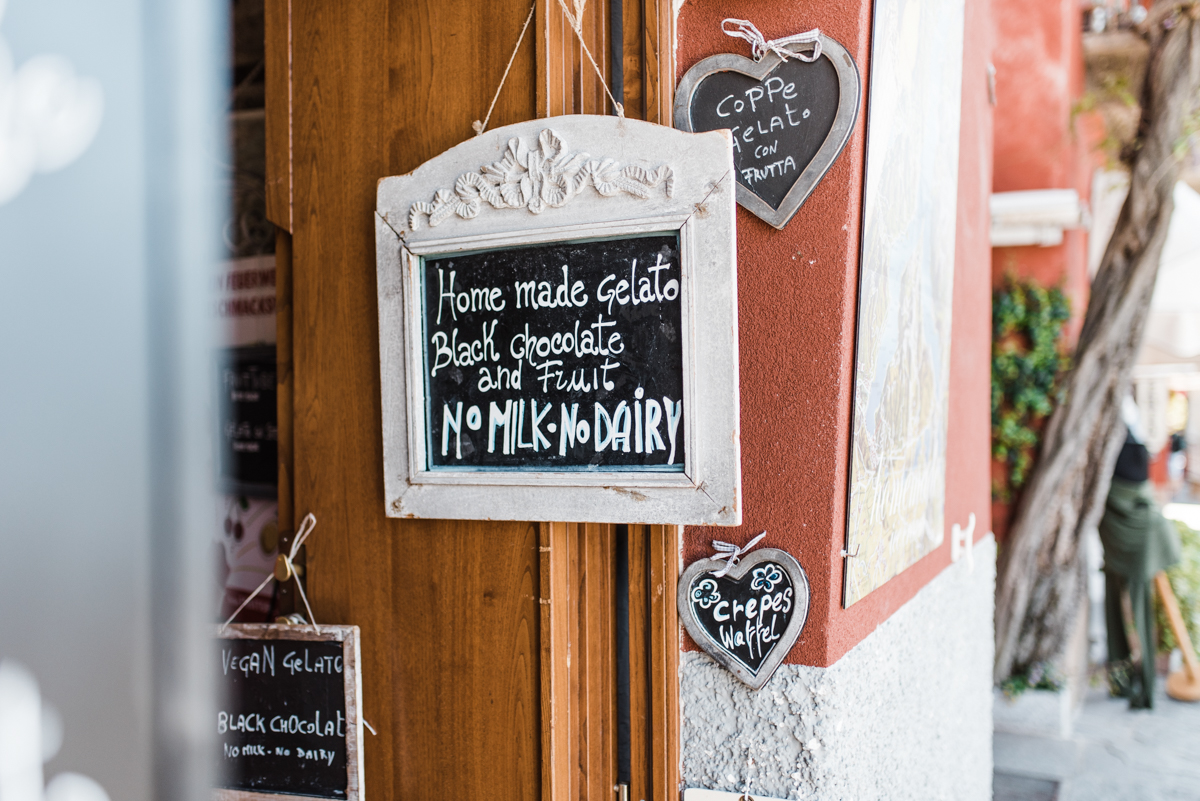 COPPE
GELATO
CON
FRUTTA
Home made Gelato
Black chocolate
and Fruit
No MILK • No DAIRY
crepes
Waffel
VEGAN GELATO
BLACK CHOCOLAT
NO MILK - NO DAIRY